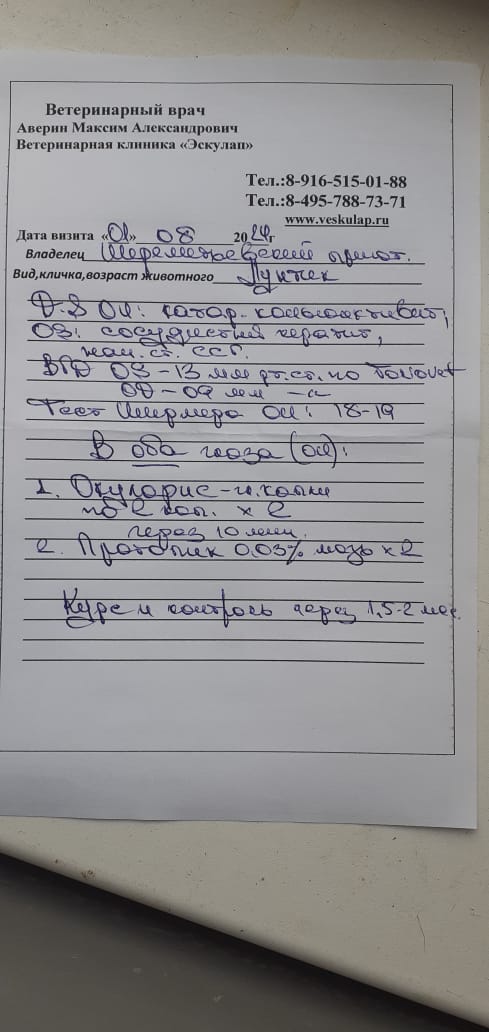 Ветеринарный врач
Аверин Максим Александрович
Ветеринарная клиника «Эскулап»
Тел.:8-916-515-01-88
Тел.:8-495-788-73-71
www.veskulap.ru
Дата визита «01» 08 2024г
Владелец Шереметьевский приют.
Вид,кличка,возраст животного Лунтик
D-S OU: катар. конъюнктивит,
OS: сосудистый кератит,
нач. ст. ССГ.
ВГД OS - 13 мм рт.ст. по Tonovet
OD - 09 мм -"
Тест Ширмера OU: 18-19
В оба глаза (OU):
1. Окулорис - гл. капли
по 2 кап. x 2
через 10 мин.
2. Протопик 0,03% мазь x 2
Курс и контроль через 1,5-2 мес.